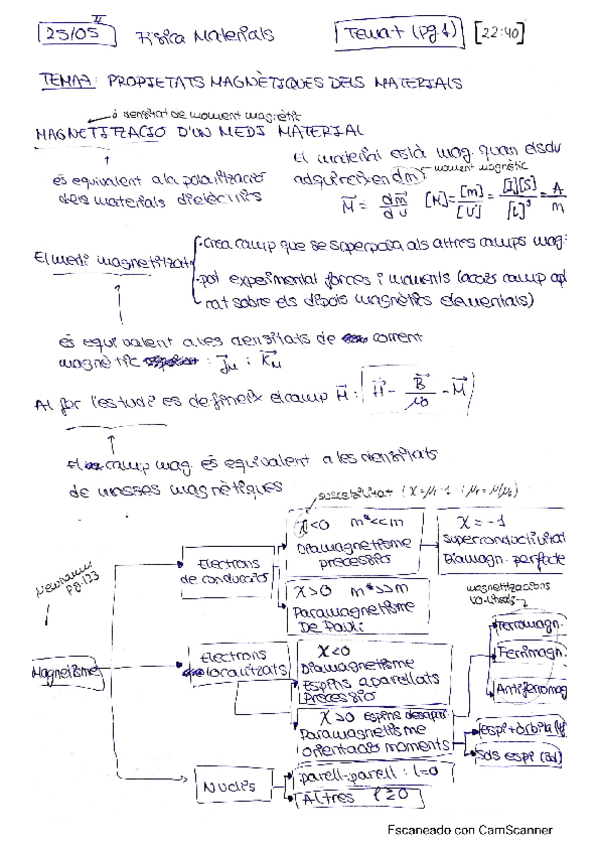 25/05 II Física Materials Tema 7 (pg.1) [22:40]
TEMA 7: PROPIETATS MAGNÈTIQUES DELS MATERIALS
ó densitat de moment magnètic
MAGNETITZACIÓ D'UN MEDI MATERIAL
és equivalent a la polarització
dels materials dielèctrics
El material està mag. quan els dv
adquireixen dm⃗ moment magnètic
M⃗ = dm⃗/dv [M] = [m]/[V] = [I][S]/[L]³ = A/m
El medi magnetitzat
· crea camp que se superposa als altres camps mag.
· pot experimentar forces i moments (acció camp
sobre els dipols magnètics elementals)
és equivalent a les densitats de corrent
magnètic : J⃗M i K⃗M
Al fer l'estudi es defineix el camp H⃗ : H⃗ = B⃗/μ0 - M⃗
El camp mag. és equivalent a les densitats
de masses magnètiques
susceptibilitat (χ=μr-1 ; μr=μ/μ0)
Magnetisme
pg.133
Electrons
de conducció
χ<0 m*<<m
Diamagnetisme
precessió
χ = -1
Superconductivitat
Diamagn. perfecte
χ>0 m*>>m
Paramagnetisme
De Pauli
magnetitzacions
Electrons
localitzats
χ<0
Diamagnetisme
Espins aparellats
Precessió
χ>0 espins desapar
Paramagnetisme
orientació moments
Ferromagn.
Ferrimagn.
Antiferromag
espí+òrbita (4f
Sols espí (3d)
Nuclis
parell-parell : l=0
Altres l≥0
Escaneado con CamScanner